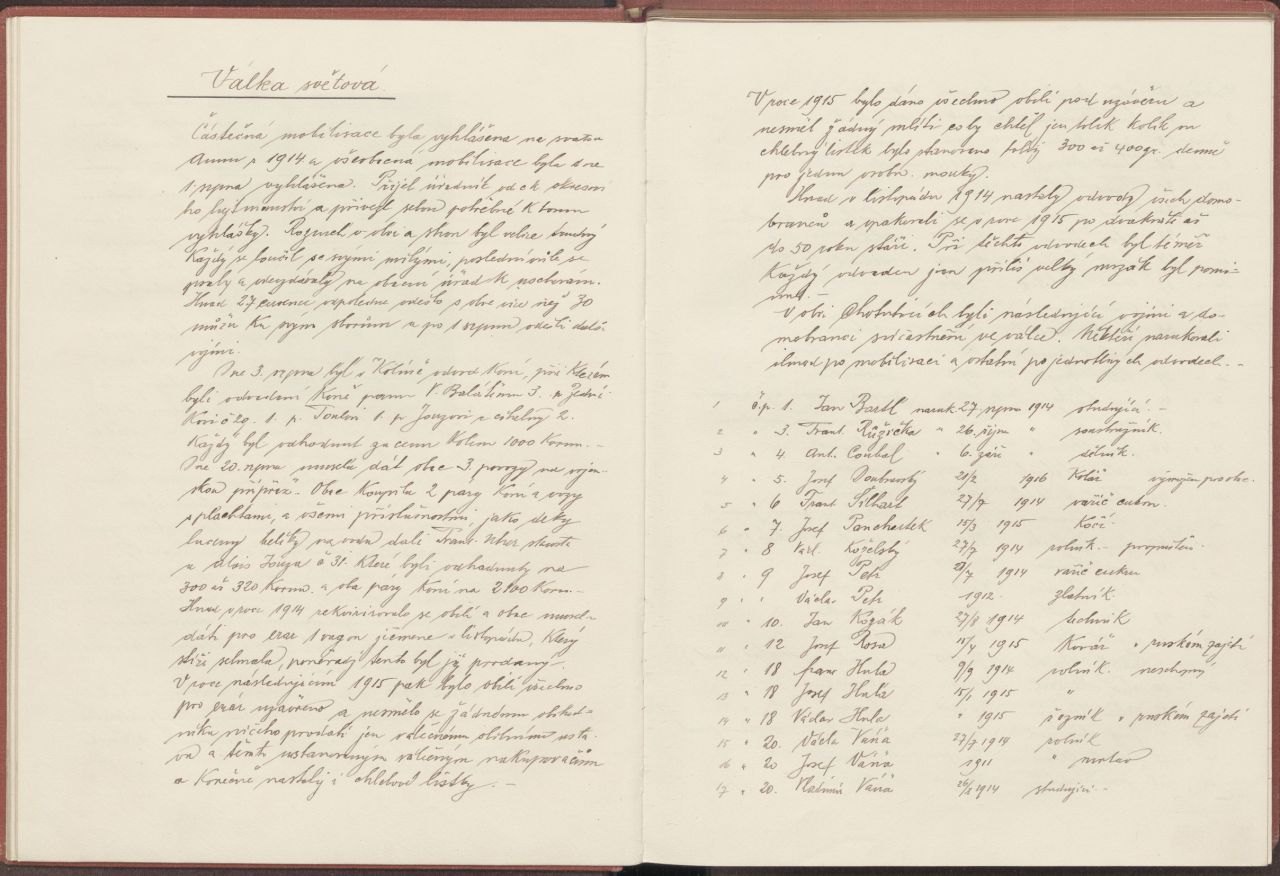 Válka světová.
Částečná mobilisace byla vyhlášena na svatou
Annu r 1914 a všeobecná mobilisace byla dne
1. srpna vyhlášena. Přijel úředník od ck okresní
ho hejtmanství a přivezl sebou potřebné k tomu
vyhlášky. Rozruch v obci a shon byl velice
Každý se loučil se svými milými, poslední
a odevzdávaly na obecní úřad k uschování.
Hned 27 července odpoledne odešlo z obce více nej 30
mužů ku svým sborům a po 1 srpnu odešli další
vojíni.
Dne 3. srpna byl v Kolíně odvod koní, při kterém
byli odvedeni koně panu V. Balátěmu 3. p
Kovi č 29. 1. p. 1. p Jouzovi z 2.
Každý byl odhodnut za cenu kolem 1000 Korun. –
Dne 20. srpna musela dát obec 3. povozy na vojen-
skou přípřež. Obec koupila 2 páry koní a vozy
s plachtami, a všemi příslušnostmi, jako deky
lucerny kbelíky na vodu dali Frant. starosta
a Alois Jouza č 31. Které byli odhadnuty na
300 až 320 Korun. a oba páry koní na 2100 Korun. –
Hned v roce 1914 rekvirirovalo se obilí a obec musela
dáti pro erar 1 vagon ječmene v listopadu, který
stěží sehnala, poněvadž tento byl již prodaný.
V roce následujícím 1915 pak bylo obilí všechno
pro erár uzavřeno a nesmělo se žádnému obchod-
níku ničeho prodati jen válečnému obilnímu ústa
vu a těmto ustanoveným válečným nakupovačům
a konečně nastaly i chlebové lístky. –
V roce 1915 bylo dáno všechno obilí pod uzávěru a
nesměl žádný mlíti coby chtěl jen tolik kolik na
chlebový lístek bylo stanoveno totiž 300 až 400 gr. denně
pro jednu osobu. mouky.
Hned v listopadu 1914 nastaly odvody všech domo-
branců a opakovali se v roce 1915 po dvakráte až
do 50 roku stáří. Při těchto odvodech byl téměř
Každý odveden jen příliš velký mrzák byl pomi-
nut. –
V obci Chotuticích byli následující vojíni a do-
mobranci súčastněni ve válce. Někteří narukovali
ihned po mobilisaci a ostatní po jednotlivých odvodech. –
1 č.p. 1. Jan Bartl naruk. 27. srpna 1914 studující. –
2 " 3. Frant. Růžička " 26. říjn " soustružník.
3 " 4. Ant. Coubal " 6. září " dělník.
4 " 5. Josef Doubravský 21/2 1916 Kolář
5 " 6 Frant Šilhart 27/7 1914 vařič cukru.
6 " 7. Josef Panchartek 15/3 1915 Kočí.
7 " 8 Karl. Košelský 27/7 1914 rolník. –
8 " 9 Josef Petr 28/7 1914 vařič cukru
9 " " Václav Petr 1912 zlatník.
10 " 10. Jan Kozák 27/8 1914 technik
11 " 12 Josef Rosa 15/4 1915 Kovář v ruském zajetí
12 " 18 Franc Hula 9/9 1914 rolník. neschopný
13 " 18 Josef Hula 15/1 1915 "
14 " 18 Václav Hula " 1915 řezník v ruském zajetí
15 " 20. Václav Váňa 27/7 1914 rolník
16 " 20 Josef Váňa 1911 "
17 " 20. Vladimír Váňa 26/1 1914 studující. –